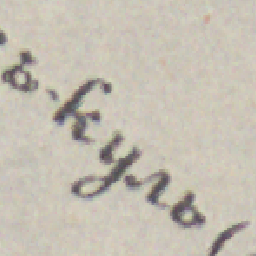 ъ. куль (